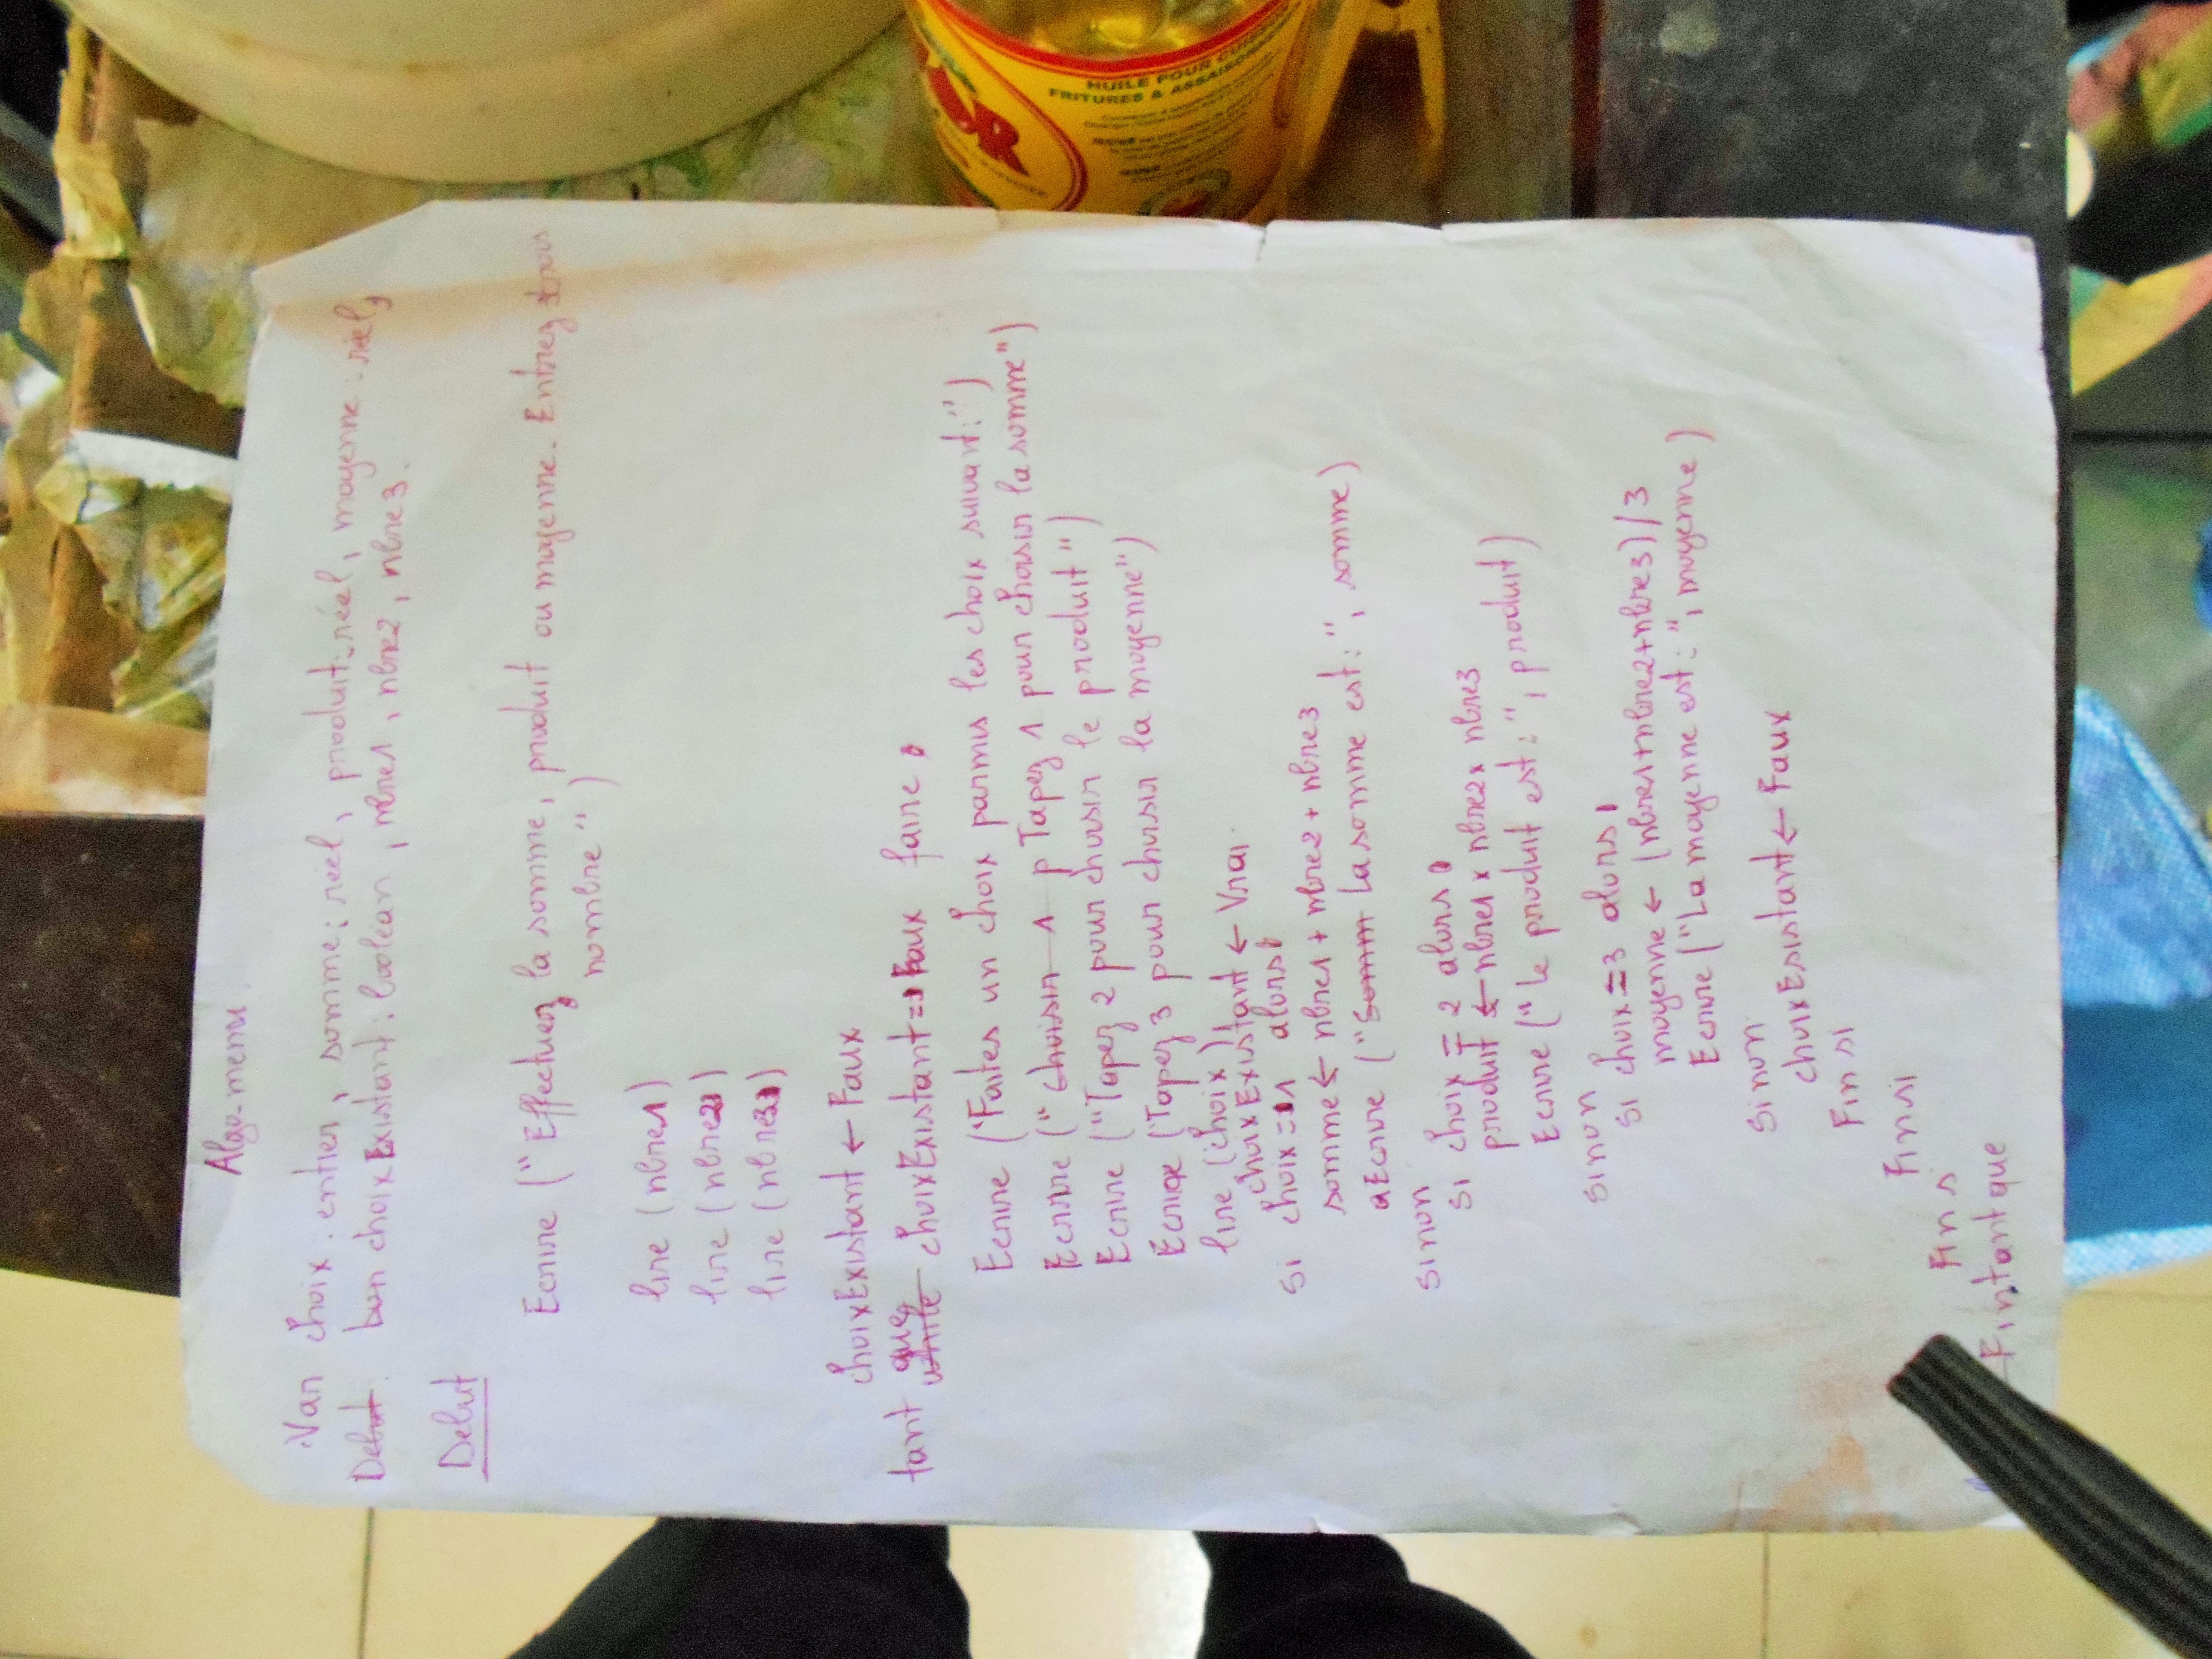 Algo-menu
Var choix : entier, somme : réel, produit : réel, moyenne : réel,
Debut. bon choixExistant : boolean, nbre1, nbre2, nbre3.
Debut
Ecrire ("Effectuez la somme, produit ou moyenne. Entrez trois
nombre")
lire (nbre1)
lire (nbre2)
lire (nbre3)
choixExistant ← Faux
tant que while choixExistant == Faux faire,
Ecrire ("Faites un choix parmis les choix suivant:")
Ecrire ("choisir 1 p Tapez 1 pour choisir la somme")
Ecrire ("Tapez 2 pour choisir le produit")
Ecrire ("Tapez 3 pour choisir la moyenne")
lire (choix)
choixExistant ← Vrai.
si choix == 1 alors,
somme ← nbre1 + nbre2 + nbre3
Ecrire ("Somm La somme est:", somme)
sinon
si choix = 2 alors,
produit ← nbre1 x nbre2 x nbre3
Ecrire ("Le produit est:", produit)
sinon
si choix = 3 alors,
moyenne ← (nbre1+nbre2+nbre3)/3
Ecrire ("La moyenne est:", moyenne)
sinon
choixExistant ← Faux
Fin si
Finsi
Fin s
Fintantque
HUILE POUR
FRITURES & ASSAISON